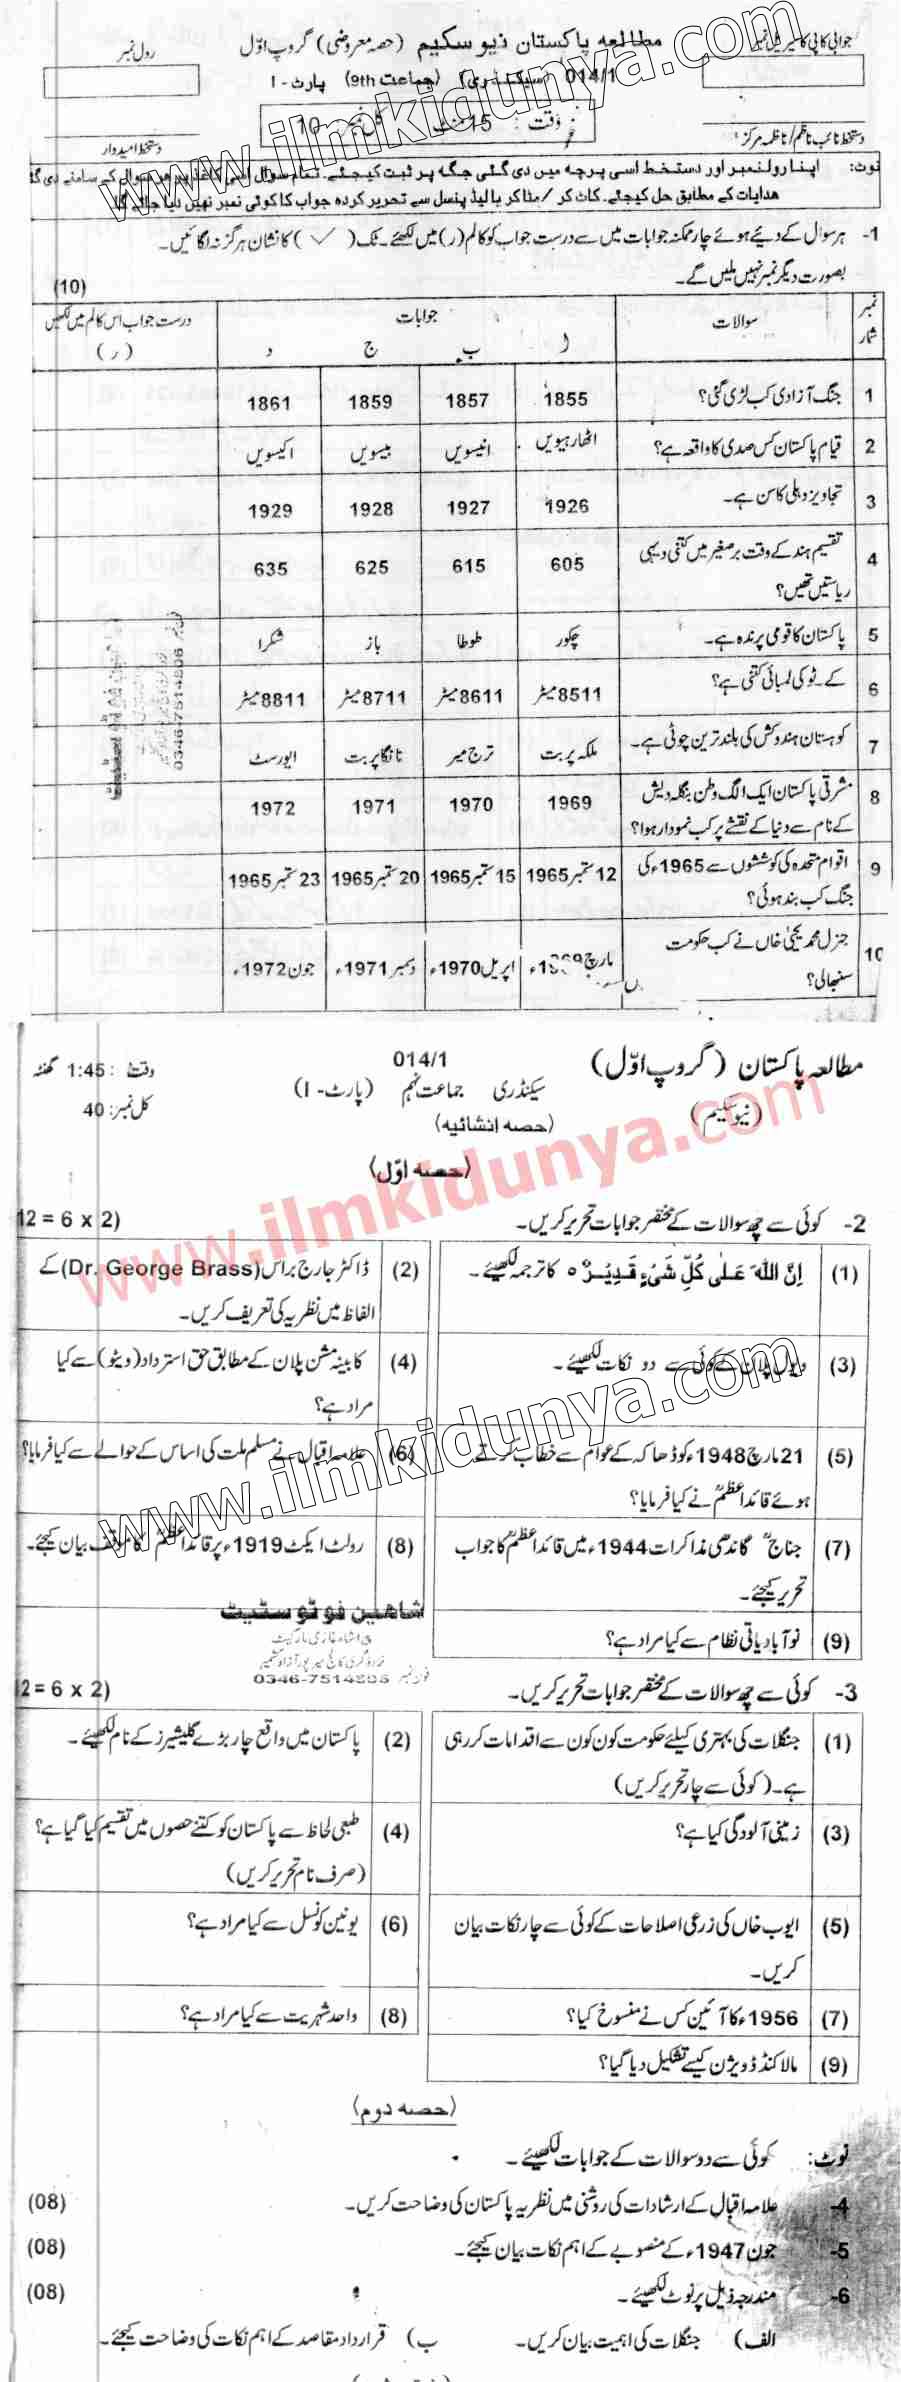 جوابی کاپی کا سیریل نمبر
مطالعہ پاکستان نیو سکیم (حصہ معروضی) گروپ اوّل
رول نمبر
014/1 (سیکنڈری) (جماعت 9th) پارٹ - I
وقت : 15 منٹ کل نمبر: 10
دستخط نائب ناظم/ناظمہ مرکز:
دستخط امیدوار
نوٹ: اپنا رولنمبر اور دستخط اسی پرچہ میں دی گئی جگہ پر ثبت کیجئے۔ تمام سوال اسی کاغذ پر ہر سوال کے سامنے دی گئی
ہدایات کے مطابق حل کیجئے۔ کاٹ کر / مٹا کر یا لیڈ پنسل سے تحریر کردہ جواب کا کوئی نمبر نہیں دیا جائے گا
1- ہر سوال کے دیئے ہوئے چار ممکنہ جوابات میں سے درست جواب کو کالم (ر) میں لکھئے۔ ٹک (✓) کا نشان ہرگز نہ لگائیں۔
بصورت دیگر نمبر نہیں ملیں گے۔ (10)
نمبر شمار سوالات جوابات درست جواب اس کالم میں لکھیں
ا ب ج د (ر)
1 جنگ آزادی کب لڑی گئی؟ 1855 1857 1859 1861
2 قیام پاکستان کس صدی کا واقعہ ہے؟ اٹھارہیویں انیسویں بیسویں اکیسویں
3 تجاویز دہلی کا سن ہے۔ 1926 1927 1928 1929
4 تقسیم ہند کے وقت برصغیر میں کتنی دیسی 605 615 625 635
ریاستیں تھیں؟
5 پاکستان کا قومی پرندہ ہے۔ چکور طوطا باز شکرا
6 کے۔ٹو کی لمبائی کتنی ہے؟ 8511میٹر 8611میٹر 8711میٹر 8811میٹر
7 کوہستان ہندوکش کی بلند ترین چوٹی ہے۔ ملکہ پربت ترچ میر نانگا پربت ایورسٹ
8 مشرقی پاکستان ایک الگ وطن بنگلہ دیش 1969 1970 1971 1972
کے نام سے دنیا کے نقشے پر کب نمودار ہوا؟
9 اقوام متحدہ کی کوششوں سے 1965ء کی 12 ستمبر 1965 15 ستمبر 1965 20 ستمبر 1965 23 ستمبر 1965
جنگ کب بند ہوئی؟
10 جنرل محمد یحییٰ خاں نے کب حکومت مارچ 1969ء اپریل 1970ء دسمبر 1971ء جون 1972ء
سنبھالی؟
0346-7514806
مطالعہ پاکستان (گروپ اوّل) 014/1 وقت : 1:45 گھنٹہ
(نیو سکیم) سیکنڈری جماعت نہم (پارٹ - I) کل نمبر: 40
(حصہ انشائیہ)
(حصہ اول)
2- کوئی سے چھ سوالات کے مختصر جوابات تحریر کریں۔ 12 = 6 x 2)
(1) اِنَّ اللّٰہَ عَلٰی کُلِّ شَیْءٍ قَدِیْرٌ ہ کا ترجمہ لکھیئے۔
(2) ڈاکٹر جارج براس (Dr. George Brass) کے
الفاظ میں نظریہ کی تعریف کریں۔
(3) ویول پلان کے کوئی سے دو نکات لکھیئے۔
(4) کابینہ مشن پلان کے مطابق حق استرداد (ویٹو) سے کیا
مراد ہے؟
(5) 21 مارچ 1948ء کو ڈھاکہ کے عوام سے خطاب کرتے
ہوئے قائداعظمؒ نے کیا فرمایا؟
(6) علامہ اقبال نے مسلم ملت کی اساس کے حوالے سے کیا فرمایا؟
(7) جناحؒ گاندھی مذاکرات 1944ء میں قائداعظمؒ کا جواب
تحریر کیجئے۔
(8) رولٹ ایکٹ 1919ء پر قائداعظمؒ کا موقف بیان کیجئے۔
(9) نو آبادیاتی نظام سے کیا مراد ہے؟
شاہین فوٹو سٹیٹ
فون نمبر 0346-7514806
3- کوئی سے چھ سوالات کے مختصر جوابات تحریر کریں۔ 2 = 6 x 2)
(1) جنگلات کی بہتری کیلئے حکومت کون کون سے اقدامات کر رہی
ہے۔ (کوئی سے چار تحریر کریں)
(2) پاکستان میں واقع چار بڑے گلیشیرز کے نام لکھیئے۔
(3) زمینی آلودگی کیا ہے؟
(4) طبعی لحاظ سے پاکستان کو کتنے حصوں میں تقسیم کیا گیا ہے؟
(صرف نام تحریر کریں)
(5) ایوب خاں کی زرعی اصلاحات کے کوئی سے چار نکات بیان
کریں۔
(6) یونین کونسل سے کیا مراد ہے؟
(7) 1956ء کا آئین کس نے منسوخ کیا؟
(8) واحد شہریت سے کیا مراد ہے؟
(9) مالاکنڈ ڈویژن کیسے تشکیل دیا گیا؟
(حصہ دوم)
نوٹ: کوئی سے دو سوالات کے جوابات لکھیئے۔
4- علامہ اقبال کے ارشادات کی روشنی میں نظریہ پاکستان کی وضاحت کریں۔ (08)
5- جون 1947ء کے منصوبے کے اہم نکات بیان کیجئے۔ (08)
6- مندرجہ ذیل پر نوٹ لکھیئے۔ (08)
الف) جنگلات کی اہمیت بیان کریں۔ ب) قرارداد مقاصد کے اہم نکات کی وضاحت کیجئے۔
www.ilmkidunya.com
www.ilmkidunya.com
www.ilmkidunya.com